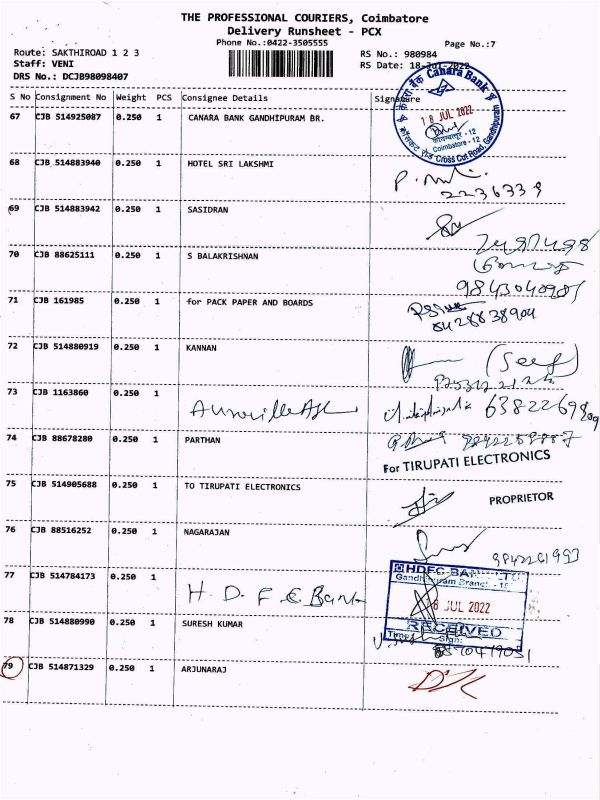 THE PROFESSIONAL COURIERS, Coimbatore
Delivery Runsheet - PCX
Phone No.:0422-3505555
Page No.:7
Route: SAKTHIROAD 1 2 3
RS No.: 980984
Staff: VENI
RS Date: 18-Jul-2022
DRS No.: DCJB98098407
S No Consignment No Weight PCS Consignee Details Signature
67 CJB 514925087 0.250 1 CANARA BANK GANDHIPURAM BR.
Canara Bank
18 JUL 2022
Coimbatore - 12
Cross Cut Road, Gandhipuram
68 CJB 514883940 0.250 1 HOTEL SRI LAKSHMI
2236339
69 CJB 514883942 0.250 1 SASIDRAN
70 CJB 88625111 0.250 1 S BALAKRISHNAN
71 CJB 161985 0.250 1 for PACK PAPER AND BOARDS
72 CJB 514880919 0.250 1 KANNAN
73 CJB 1163860 0.250 1
74 CJB 88678280 0.250 1 PARTHAN
For TIRUPATI ELECTRONICS
75 CJB 514905688 0.250 1 TO TIRUPATI ELECTRONICS
PROPRIETOR
76 CJB 88516252 0.250 1 NAGARAJAN
9842261993
77 CJB 514784173 0.250 1 H.D.F.C Bank
HDFC BANK LTD
Gandhipuram Branch
8 JUL 2022
RECEIVED
Time Sign:
78 CJB 514880990 0.250 1 SURESH KUMAR
79 CJB 514871329 0.250 1 ARJUNARAJ